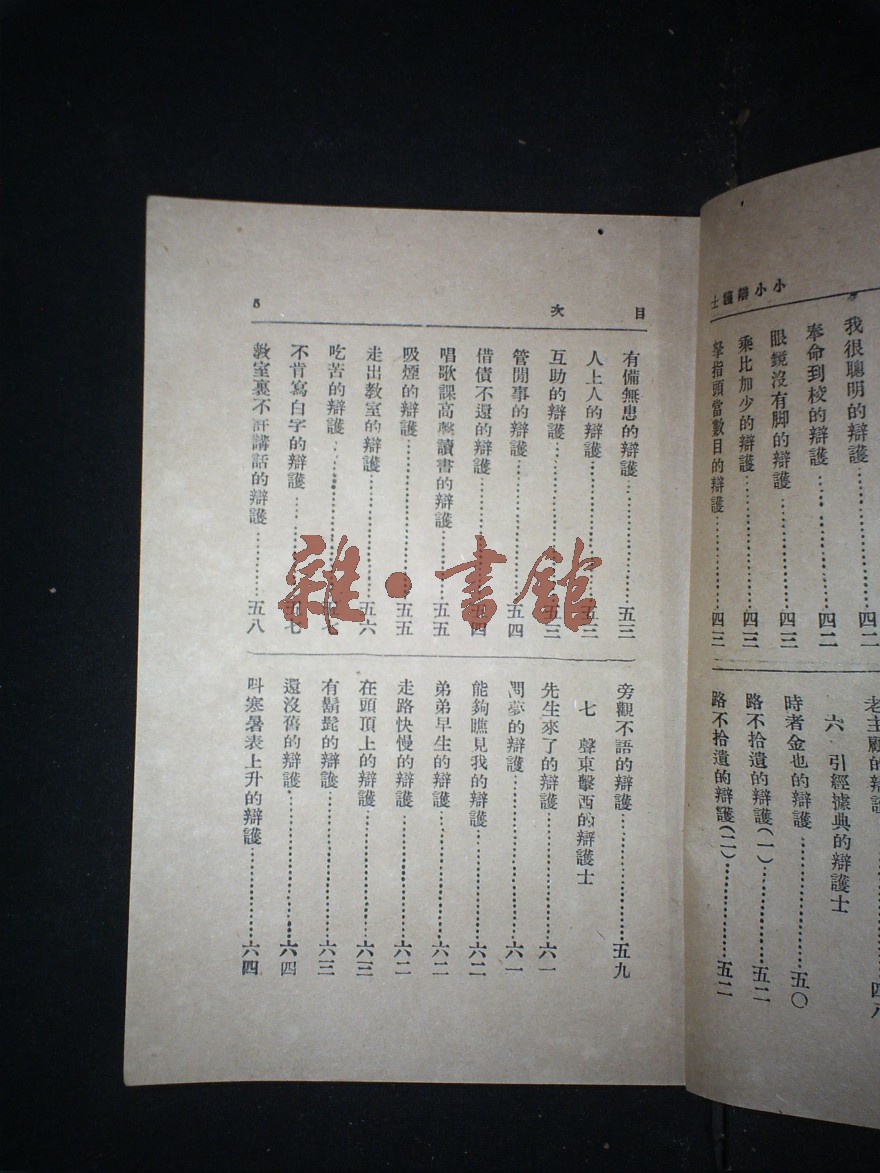 小小辯護士
我很聰明的辯護
四二
奉命到校的辯護……四二
眼鏡沒有脚的辯護……四三
乘比加少的辯護……四三
拏指頭當數目的辯護……四三
老主顧的辯護
六 引經據典的辯護士
時者金也的辯護……五〇
路不拾遺的辯護(一)……五二
路不拾遺的辯護(二)……五二
目次
5
有備無患的辯護……五三
人上人的辯護……五三
互助的辯護……五三
管閒事的辯護……五四
借債不還的辯護……五四
唱歌課高聲讀書的辯護……五五
吸煙的辯護……五五
走出教室的辯護……五六
吃苦的辯護……五七
不肯寫白字的辯護……五七
教室裏不許講話的辯護……五八
旁觀不語的辯護……五九
七 聲東擊西的辯護士
先生來了的辯護……六一
問夢的辯護……六一
能夠瞧見我的辯護……六二
弟弟早生的辯護……六二
走路快慢的辯護……六二
在頭頂上的辯護……六三
有鬍髭的辯護……六三
還沒舊的辯護……六四
叫寒暑表上升的辯護……六四
雜·書館